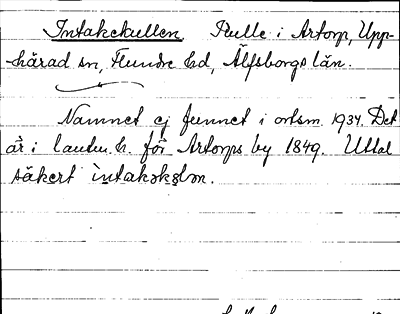 Intakekullen Kulle i Artorp, Upp-
härad sn, Flundre hd, Älfsborgs län.
Namnet ej funnet i ortsm. 1934. Det
är i lantm. h. för Artorps by 1849. Uttal
säkert